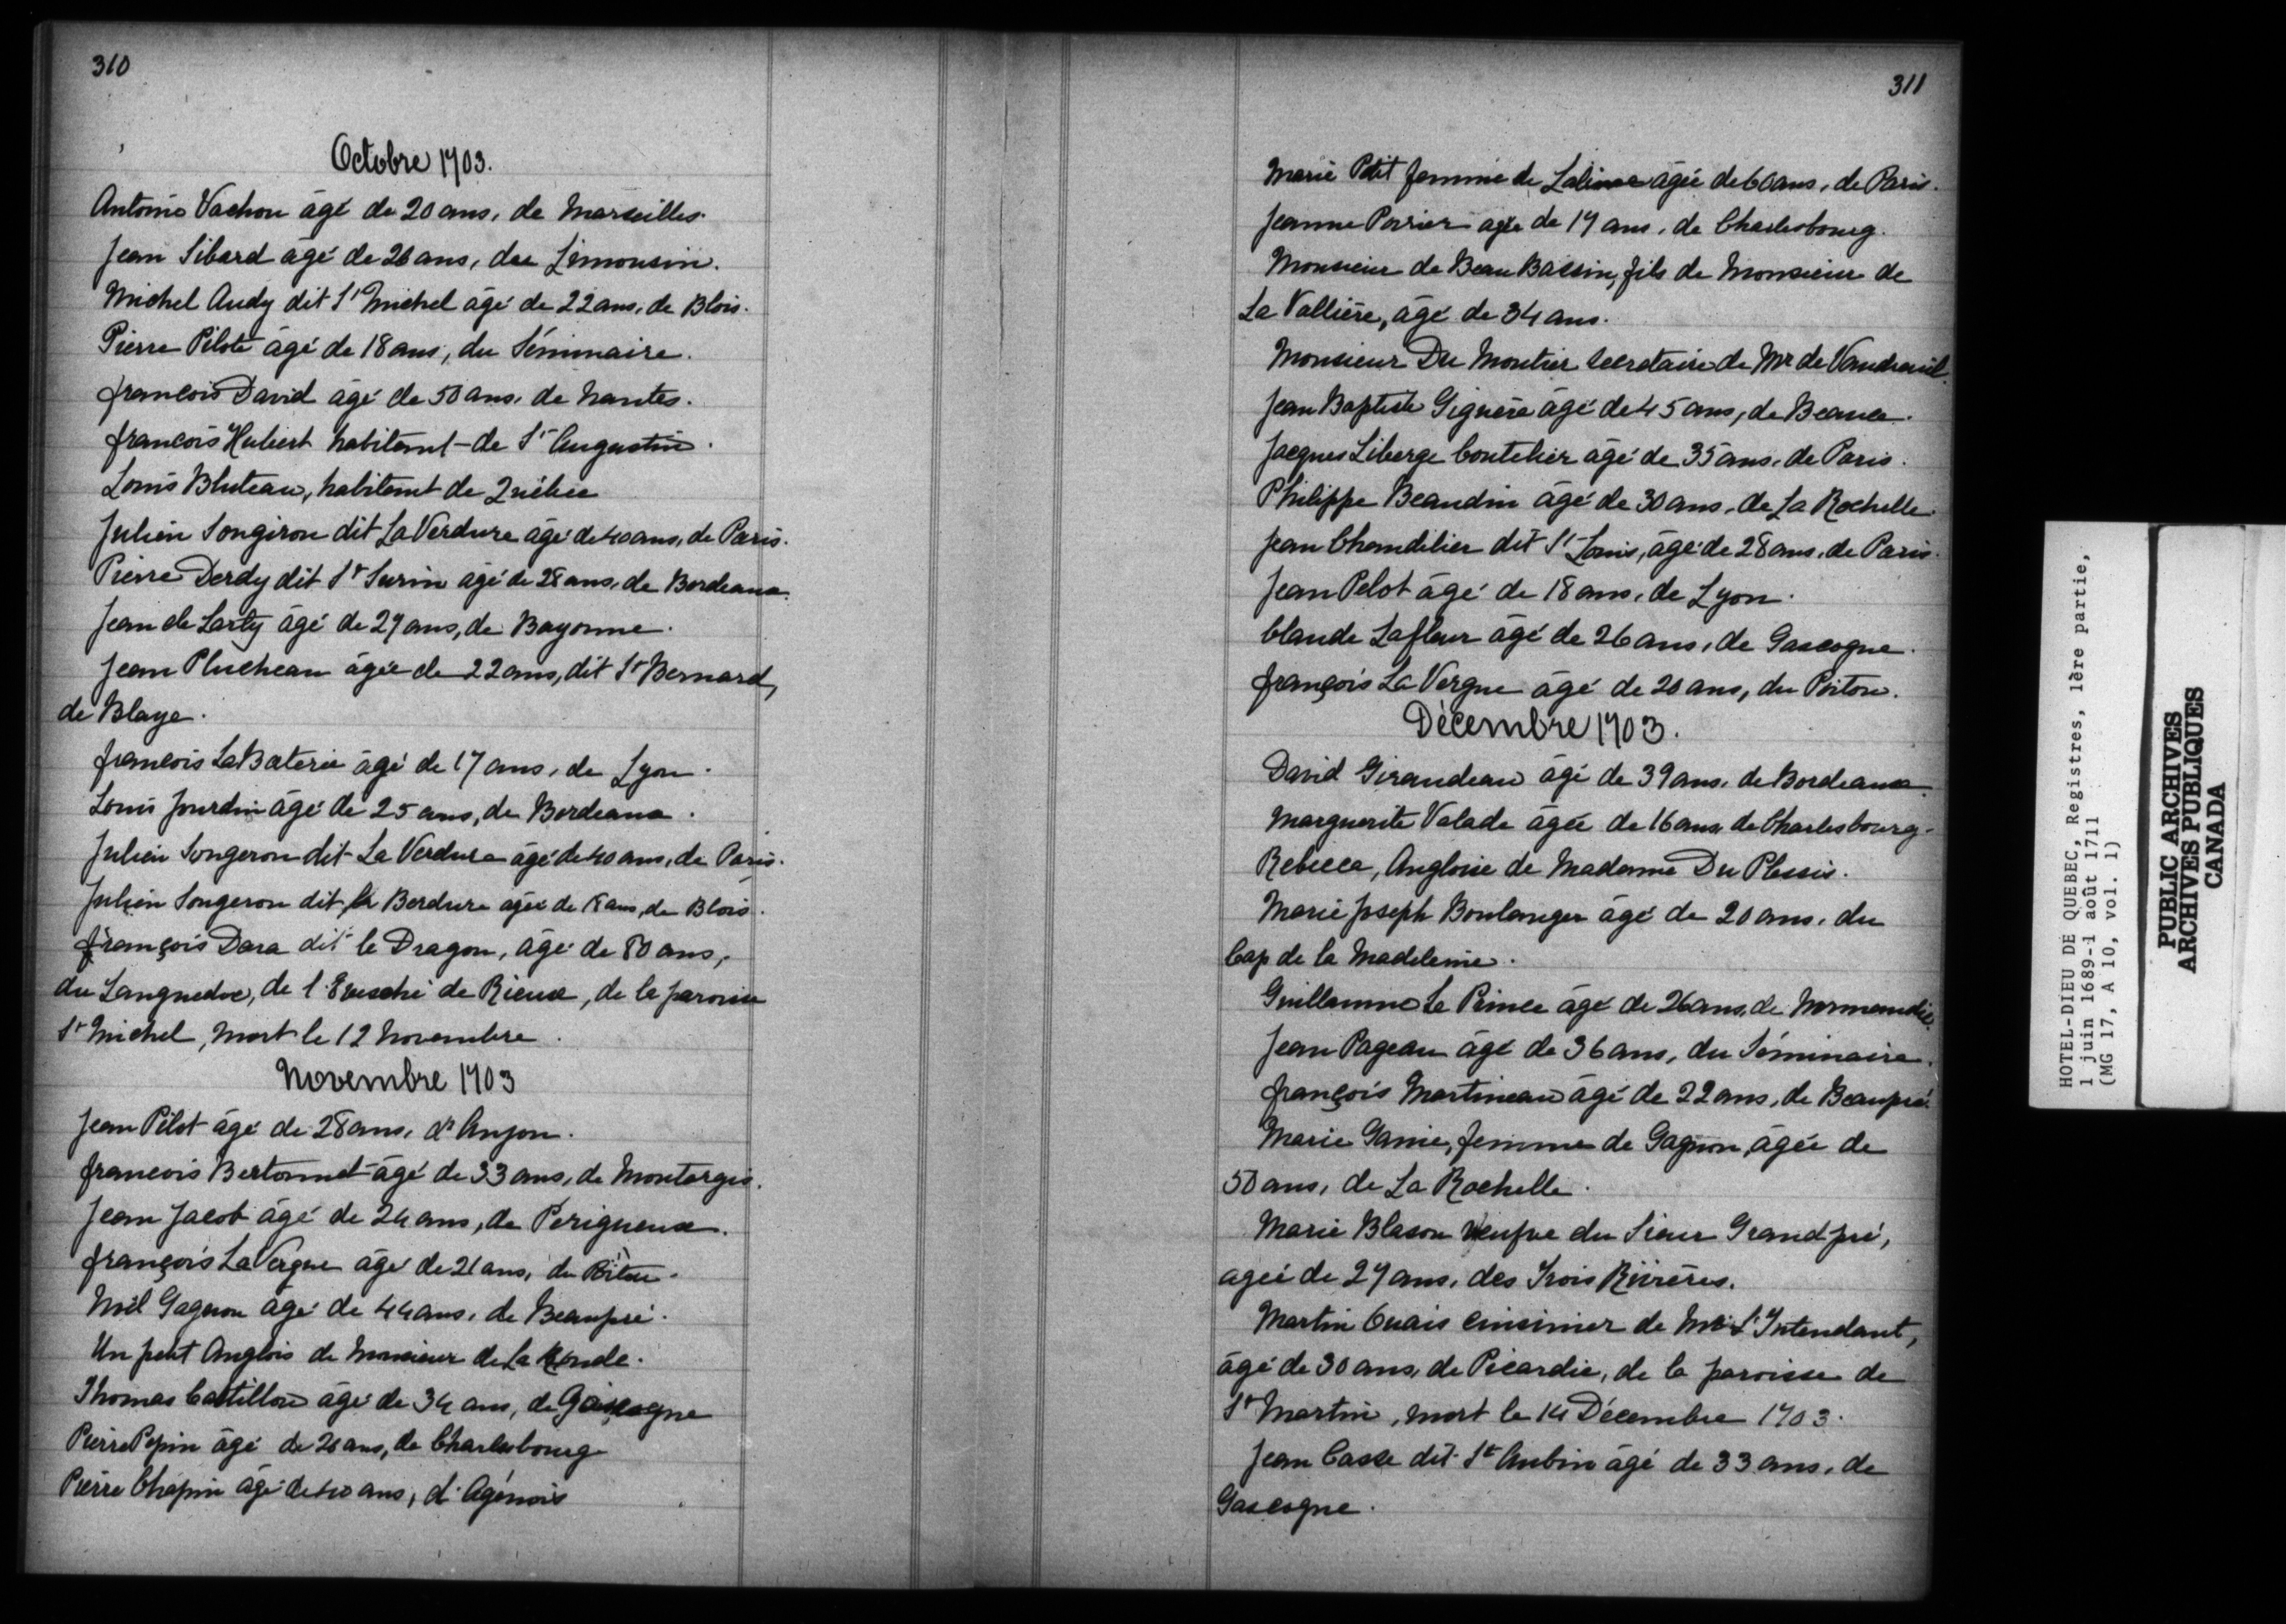 310
Octobre 1703.
Antoine Vachon âgé de 20 ans, de Marseilles.
Jean Sibard âgé de 26 ans, du Limousin.
Michel Audy dit St Michel âgé de 22 ans, de Blois.
Pierre Pilote âgé de 18 ans, du Séminaire.
françois David âgé de 50 ans, de Nantes.
francois Hubert habitant de St Augustin.
Louis Bluteau, habitant de Québec
Julien Songiron dit La Verdure âgé de 40 ans, de Paris.
Pierre Derdy dit St Surin âgé de 28 ans, de Bordeaux.
Jean de Larty âgé de 27 ans, de Bayonne.
Jean Plucheau âgée de 22 ans, dit St Bernard,
de Blaye.
francois La Baterie âgé de 17 ans, de Lyon.
Louis Jourdin âgé de 25 ans, de Bordeaux.
Julien Songeron dit La Verdure âgé de 40 ans, de Paris.
Julien Songeron dit la Berdure âgée de ans, de Blois.
françois Dara dit le Dragon, âgé de 50 ans,
du Languedoc, de l'Evesché de Rieux, de la paroisse
St Michel, mort le 12 Novembre.
Novembre 1703
Jean Pilot âgé de 28 ans, d'Anjou.
francois Bertonnet âgé de 33 ans, de Montargis.
Jean Jacob âgé de 24 ans, de Perigueux.
françois La Vergne âgé de 21 ans, du Poitou.
Noël Gagnon âgé de 44 ans, de Beaupré.
Un petit Anglois de Monsieur de La
Thomas Castillon âgé de 34 ans, de Gascogne
Pierre Pepin âgé de 20 ans, de Charlesbourg
Pierre Chapin âgé de 40 ans, d'Agénois
311
Marie Petit femme de âgée de 60 ans, de Paris.
Jeanne Poirier agée de 17 ans, de Charlesbourg.
Monsieur de Beau Bassin, fils de Monsieur de
La Vallière, âgé de 34 ans.
Monsieur Du Moutier secretaire de Mr de Vaudreuil.
Jean Baptiste Giguère âgé de 45 ans, de Beauce.
Jacques Liberge Coutelier âgé de 35 ans, de Paris.
Philippe Beaudin âgé de 30 ans, de La Rochelle.
Jean Chandelier dit St Louis, âgé de 28 ans, de Paris.
Jean Pelot âgé de 18 ans, de Lyon.
Claude Lafleur âgé de 26 ans, de Gascogne.
françois La Vergne âgé de 20 ans, du Poitou.
Décembre 1703.
David Giraudeau âgé de 39 ans, de Bordeaux.
Marguerite Valade âgée de 16 ans de Charlesbourg.
Rebecca, Angloise de Madame Du Plessis.
Marie Joseph Boulanger âgé de 20 ans, du
Cap de la Madeleine.
Guillaume Le Prince âgé de 26 ans, de Normandie.
Jean Pageau âgé de 36 ans, du Séminaire.
françois Martineau âgé de 22 ans, de Beaupré.
Marie Ganie, femme de Gagnon, âgée de
50 ans, de La Rochelle.
Marie Blason veufve du Sieur Grandpré,
ageé de 27 ans, des Trois Rivières.
Martin Cuais cuisinier de Mr L'Intendant,
âgé de 30 ans, de Picardie, de la paroisse de
St Martin, mort le 14 Décembre 1703.
Jean Casse dit St Aubin âgé de 33 ans, de
Gascogne.
HOTEL-DIEU DE QUEBEC, Registres, 1ère partie,
1 juin 1689-1 août 1711
(MG 17, A 10, vol. 1)
PUBLIC ARCHIVES
ARCHIVES PUBLIQUES
CANADA